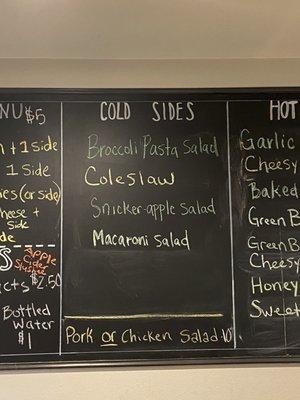 NU $5
+ 1 Side
1 Side
(or side)
cheese +
side
Apple
Cider
Slushes
$2.50
Bottled
Water
$1
COLD SIDES
Broccoli Pasta Salad
Coleslaw
Snicker-apple Salad
Macaroni Salad
Pork or Chicken Salad
HOT
Garlic
Cheesy
Baked
Green B
Green B
Cheesy
Honey
Sweet